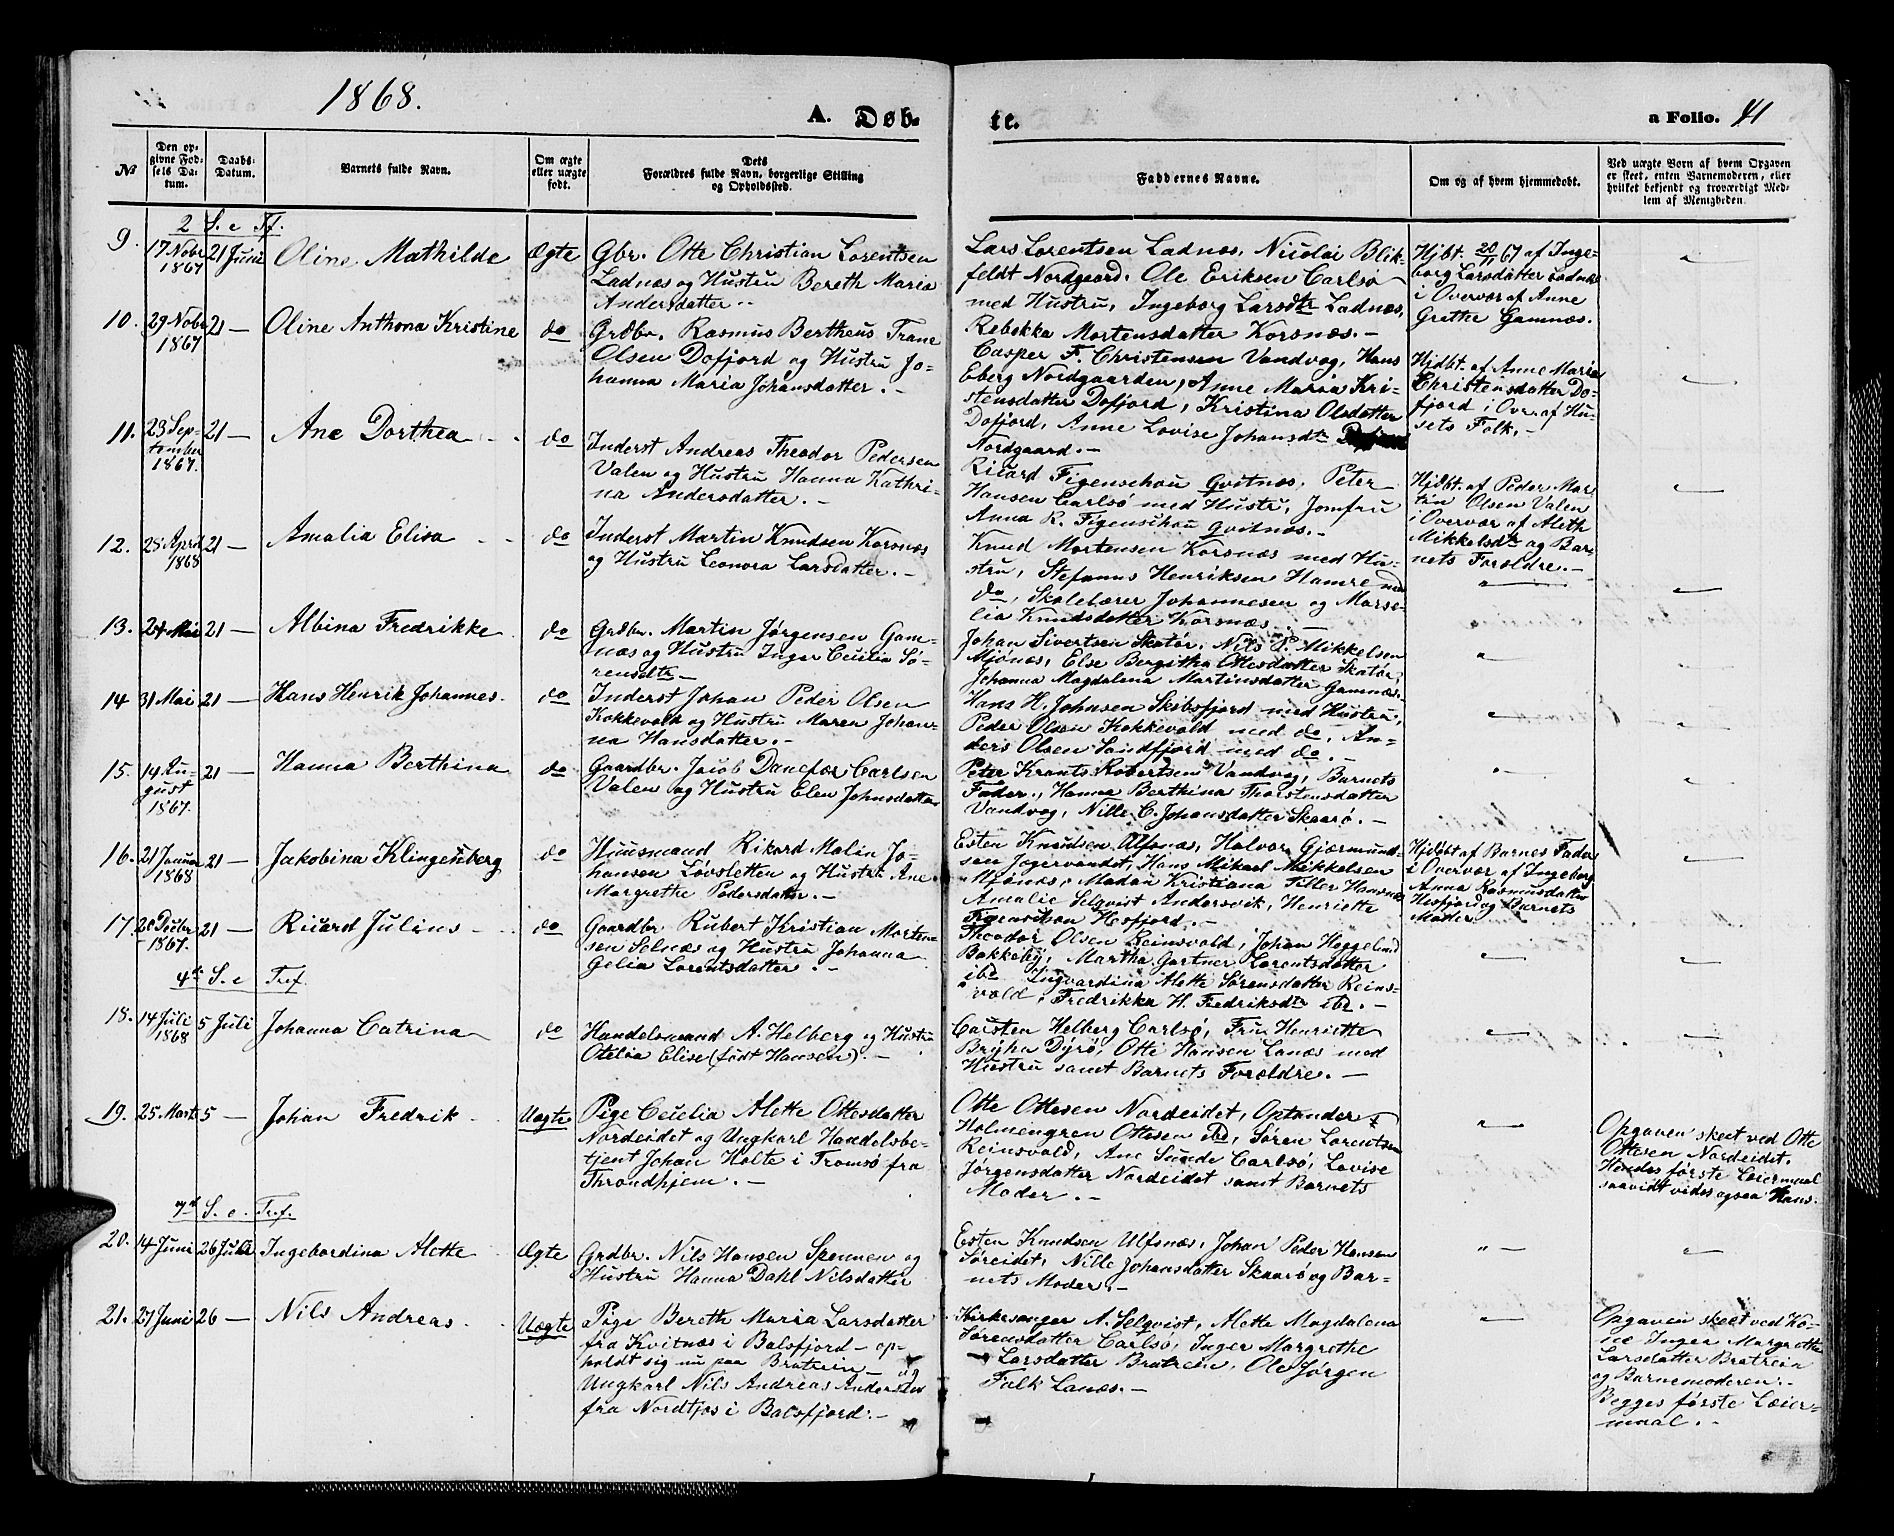 1868.
A. Døb-
te.
a Folio. 41
No
Den op-
givne Fød-
sels Da-
tum.
Daabs-
Datum.
Barnets fulde Navn.
Om ægte
eller uægte
født.
Dets
Forældres fulde Navn, borgerlige Stilling
og Opholdssted.
Faddernes Navne.
Om og af hvem hjemmedøbt.
Ved uægte Børn af hvem Opgaven
er skeet, enten Barnemoderen, eller
hvilket bekjendt og troværdigt Med-
lem af Menigheden.
2 S. e Tf.
9.
17 Novbr
1867
21 Juni
Oline Mathilde
Ægte
Gbr. Otte Christian Lorentsen
Ladnæs og Hustru Bereth Maria
Andersdatter.
Lars Lorentsen Ladnæs, Nicolai Blik-
feldt Nordgaard. Ole Eriksen Carlsø
med Hustru, Ingeborg Larsdtr Ladnæs,
Rebekka Mortensdatter Korsnæs.-
Hjbt. 20/11 67 af Inge-
borg Larsdatter Ladnæs
i Overvær af Anne
Grethe Gamnæs.
10.
29 Novbr
1867
21 —
Oline Anthona Kristine
do
Grdbr. Rasmus Bertheus Trane
Olsen Dofjord og Hustru Jo-
hanna Maria Johansdatter.-
Casper F. Christensen Vandvag, Hans
Eberg Nordgaarden, Anne Maria Kri-
stensdatter Dofjord, Kristina Olsdatter
Dofjord, Anne Lovise Johansdtr
Nordgaard.-
Hjdbt. af Anne Maria
Christensdatter Do-
fjord i Over. af Hu-
sets Folk.-
11.
23 Sep-
tember
1867.
21 —
Ane Dorthea
do
Inderst Andreas Theodor Pedersen
Valen og Hustru Hanna Kathri-
na Andersdatter.-
Ricard Figenschou Qvitnæs, Peter
Hansen Carlsø med Hustru, Jomfru
Anna R. Figenschou Qvitnæs.-
Hjdbt. af Peder Mar-
tin Olsen Valen
i Overvær af Aleth
Mikkelsdtr og Bar-
nets Forældre.-
12.
28 April
1868
21 —
Amalia Elisa
do
Inderst Martin Knudsen Korsnæs
og Hustru Leonora Larsdatter.-
Knud Mortensen Korsnæs med Hu-
stru, Stefanus Henriksen Hamre med
do, Skolelærer Johannesen og Marse-
lia Knudsdatter Korsnæs.
13.
24 Mai
21 —
Albina Fredrikke
do
Grdbr. Martin Jørgensen Gam-
næs og Hustru Inger Cecilia Sø-
rensdtr-
Johan Sivertsen Skatør, Nils P. Mikkelsen
Mjønæs, Else Bergitha Ottesdatter Skatør,
Johanna Magdalena Martinsdatter Gamnæs.
14
31 Mai
21 —
Hans Henrik Johannes.
do
Inderst Johan Peder Olsen
Kokkevold og Hustru Maren Johan-
na Hansdatter.-
Hans H. Johnsen Skibsfjord med Hustru,
Peder Olsen Kokkevold med do, An-
ders Olsen Sandfjord med do.-
15.
14 Au-
gust
1867.
21 —
Hanna Berthina
do
Gaardbr. Jacob Danefær Carlsen
Valen og Hustru Elen Johnsdatter
Peter Krants Robertsen Vandvag, Barnets
Fader, Hanna Berthina Thorstensdatter
Vandvag, Nille C. Johansdatter Skaarø.-
16.
21 Januar
1868
21 —
Jakobina Klingenberg
do
Huusmand Rikard Malin Jo-
hansen Løvsletten og Hustru Ane
Margrethe Pedersdatter.-
Esten Knudsen Ulfsnæs, Halvor Gjærmund-
sen Jægervandet, Hans Mikael Mikkelsen
Mjønæs, Madan Kristiana Filler Hansnæs
Amalie Selqvist Andersvik, Henriette
Figenschou Hesfjord.-
Hjdbt af Barnes Fader
i Overvær af Ingeborg
Anna Rasmusdatter
Hesfjord og Barnets
Moder.
17.
20 Decbr
1867.
21 —
Ricard Julius
do
Gaardbr Rubert Kristian Morten-
sen Solnæs og Hustru Johanna
Gelia Lorentsdatter.-
Theodor Olsen Reinsvold, Johan Heggelund
Bakkeby, Martha Gartner Lorentsdatter
ibd Ingvardina Alette Sørensdatter Reins-
vold, Fredrikka H. Fredriksdtr ibd.-
4de S. e Tref.
18.
14 Juli
1868
5 Juli
Johanna Catrina
do
Handelsmand A. Helberg og Hustru
Otelia Elise (født Hansen).-
Carsten Helberg Carlsø, Fru Henriette
Bryhn Dyrø, Otte Hansen Lanæs med
Hustru samt Barnets Forældre.-
19.
25 Marts
5 —
Johan Fredrik
Uægte
Pige Cecelia Alette Ottesdatter
Nordeidet og Ungkarl Handelsbe-
tjent Johan Holte i Tromsø fra
Throndhjem.-
Otte Ottesen Nordeidet, Optander
Holmengren Ottesen ibd, Søren Lorentsen
Reinsvold, Ane Sunde Carlsø, Lovise
Jørgensdatter Nordeidet samt Barnets
Moder.-
Opgaven skeet ved Otte
Ottesen Nordeidet.
Hendes første Leiermaal
saavidt vides ogsaa Hans.
7de S. e. Tref.
20.
14 Juni
26 Juli
Ingebordina Alette
Ægte
Grdbr. Nils Hansen Spennen og
Hustru Hanna Dahl Nilsdatter
Esten Knudsen Ulfsnæs, Johan Peder Hansen
Søreidet, Nille Johansdatter Skaarø og Bar-
nets Moder.-
21.
27 Juni
26 —
Nils Andreas
Uægte
Pige Bereth Maria Larsdatter
fra Kvitnæs i Balsfjord - op-
holdt sig nu paa Bratrein og
Ungkarl Nils Andreas Andersen
fra Nordtjos i Balsfjord.-
Kirkesanger A. Selqvist, Alette Magdalena
Sørensdatter Carlsø, Inger Margrethe
Larsdatter Bratrein, Ole Jørgen
Falk Lanæs.-
Opgaven skeet ved Ko-
ne Inger Margrethe
Larsdatter Bratrein
og Barnemoderen.-
Begges første Leier-
maal.-